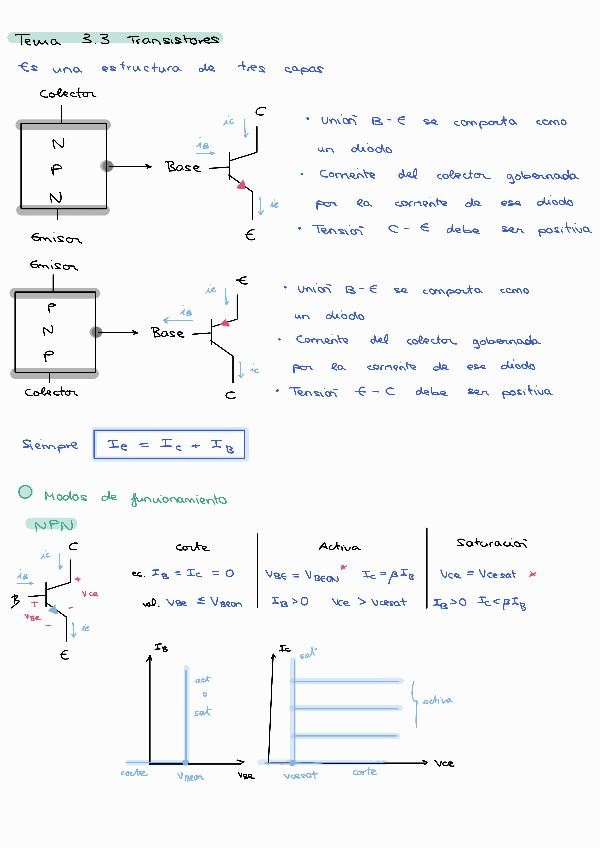 Tema 3.3 Transistores
Es una estructura de tres capas
Colector
N
P
N
Emisor
Base
C
ic
iB
ie
E
• Unión B-E se comporta como
un diodo
• Corriente del colector gobernada
por la corriente de ese diodo
• Tensión C-E debe ser positiva
Emisor
P
N
P
Colector
Base
E
ie
iB
ic
C
• Unión B-E se comporta como
un diodo
• Corriente del colector gobernada
por la corriente de ese diodo
• Tensión E-C debe ser positiva
Siempre Ie = Ic + IB
Modos de funcionamiento
NPN
C
ic
iB
B
+
VBe
-
+
Vce
-
ie
E
Corte
ec. IB = Ic = 0
val. VBe ≤ VBeon
Activa
VBE = VBEON * Ic = βIB
IB>0 Vce > Vcesat
Saturación
Vce = Vcesat *
IB>0 Ic<βIB
IB
act
o
sat
corte
VBeon
VBe
Ic
sat
activa
Vcesat
corte
Vce